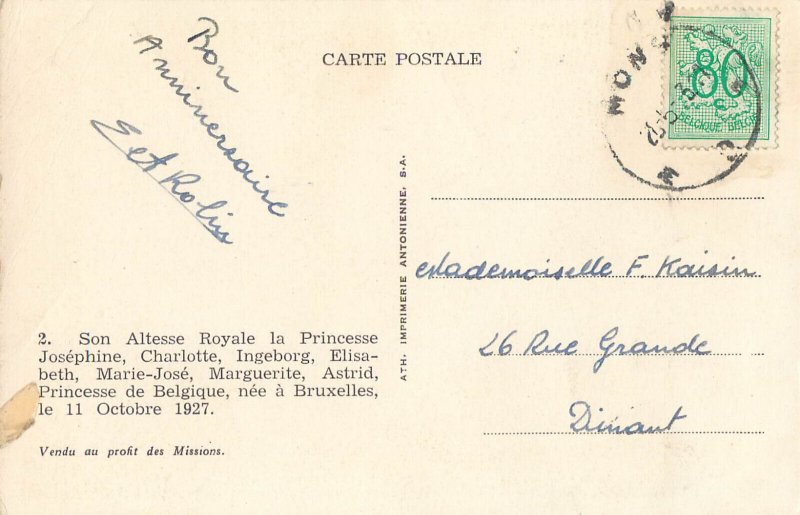 CARTE POSTALE
Bon
Anniversaire
E et A Rolin
2. Son Altesse Royale la Princesse
Joséphine, Charlotte, Ingeborg, Elisa-
beth, Marie-José, Marguerite, Astrid,
Princesse de Belgique, née à Bruxelles,
le 11 Octobre 1927.
Vendu au profit des Missions.
ATH. IMPRIMERIE ANTONIENNE, S.A.
MONS
80
BELGIQUE BELGIE
Mademoiselle F. Kaisin
26 Rue Grande
Dinant